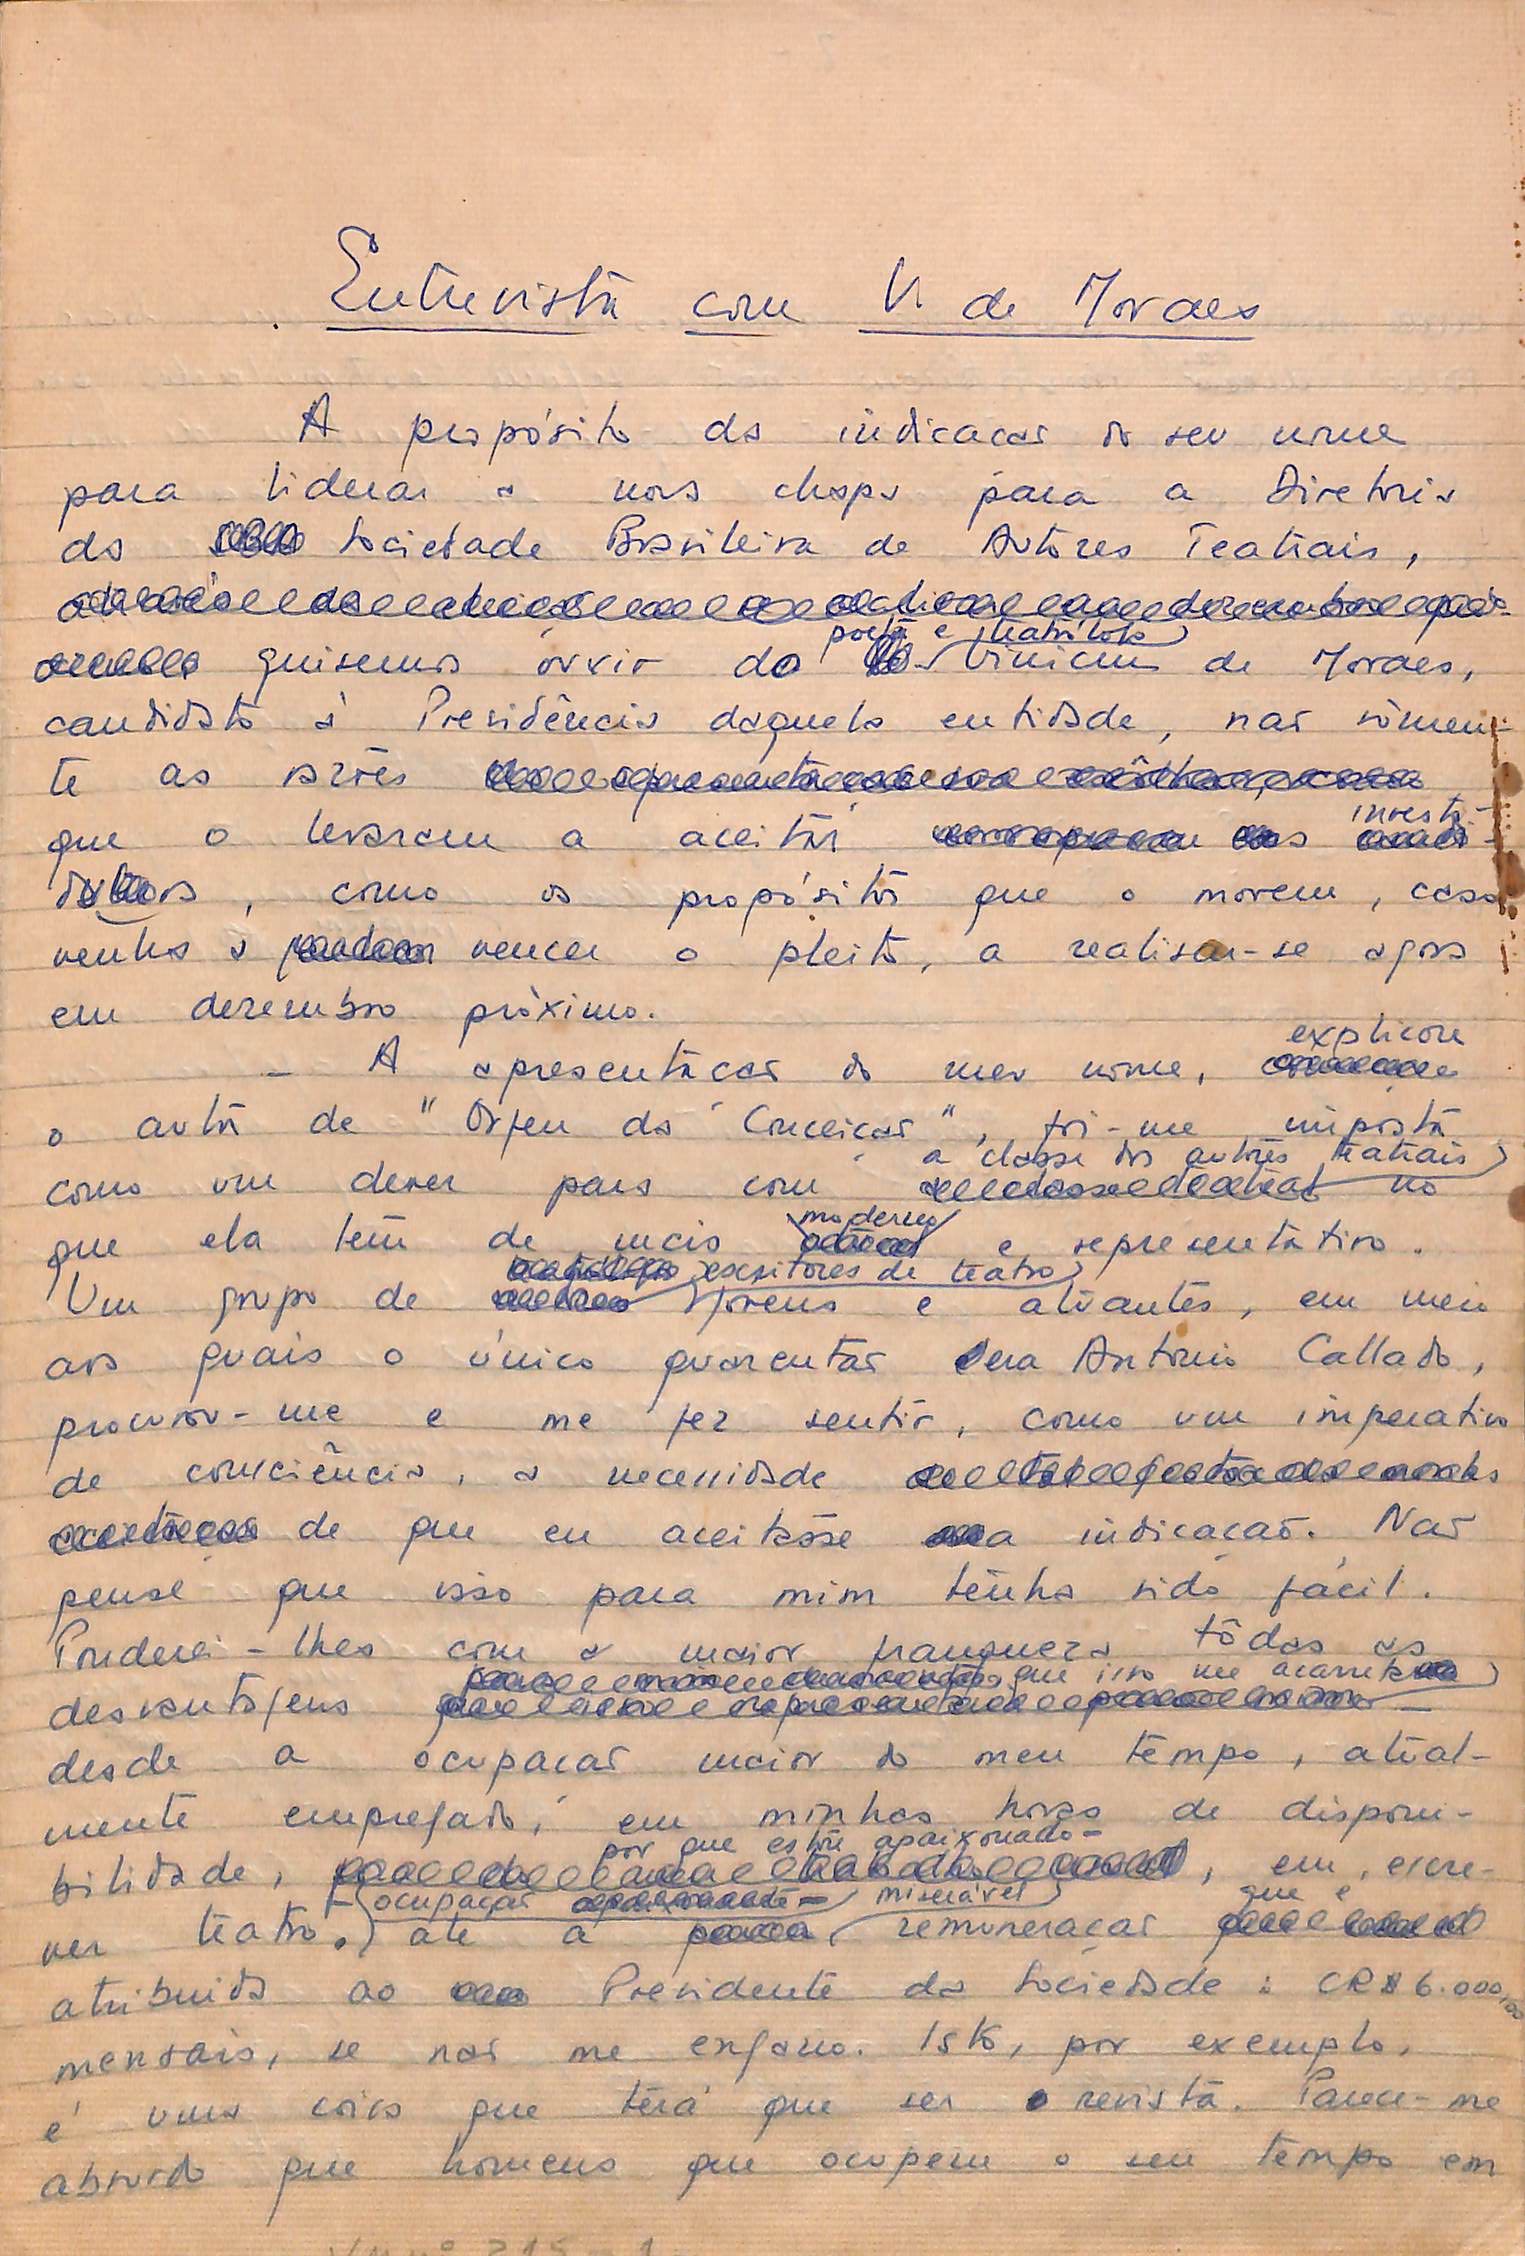 Entrevista com V. de Moraes
A propósito da indicacão do seu nome
para liderar a nova chapa para a Diretoria
da Sociedade Brasileira de Autores Teatrais,
poeta e teatrólogo
quisemos ouvir do Vinicius de Moraes,
candidato à Presidência daquela entidade, não sòmen-
te as razões
investi-
que o levaram a aceitar
dura, como os propósitos que o movem, caso
venha a vencer o pleito, a realisar-se agora
em dezembro próximo.
explicou
– A apresentacão do meu nome,
o autor de "Orfeu da Conceição", foi-me imposta
a classe dos autores teatrais
como um dever para com no
moderno
que ela tem de mais e representativo.
escritores de teatro
Um grupo de jovens e atuantes, em meio
aos quais o único quarentão era Antonio Callado,
procurou-me e me fez sentir, como um imperativo
de consciência, a necessidade
de que eu aceitásse a indicacão. Não
pense que isso para mim tenha sido fácil.
Ponderei-lhes com a maior franqueza tôdas as
que isso me acarreta
desvantagens –
desde a ocupacão maior do meu tempo, atual-
mente empregado, em minhas horas de disponi-
por que estou apaixonado –
bilidade, , em escre-
ocupação miserável que é
ver teatro, até a remuneracão
atribuida ao Presidente da Sociedade: CR$ 6.000,00
mensais, se não me engano. Isto, por exemplo,
é uma coisa que terá que ser revista. Parece-me
absurdo que homens que ocupem o seu tempo em